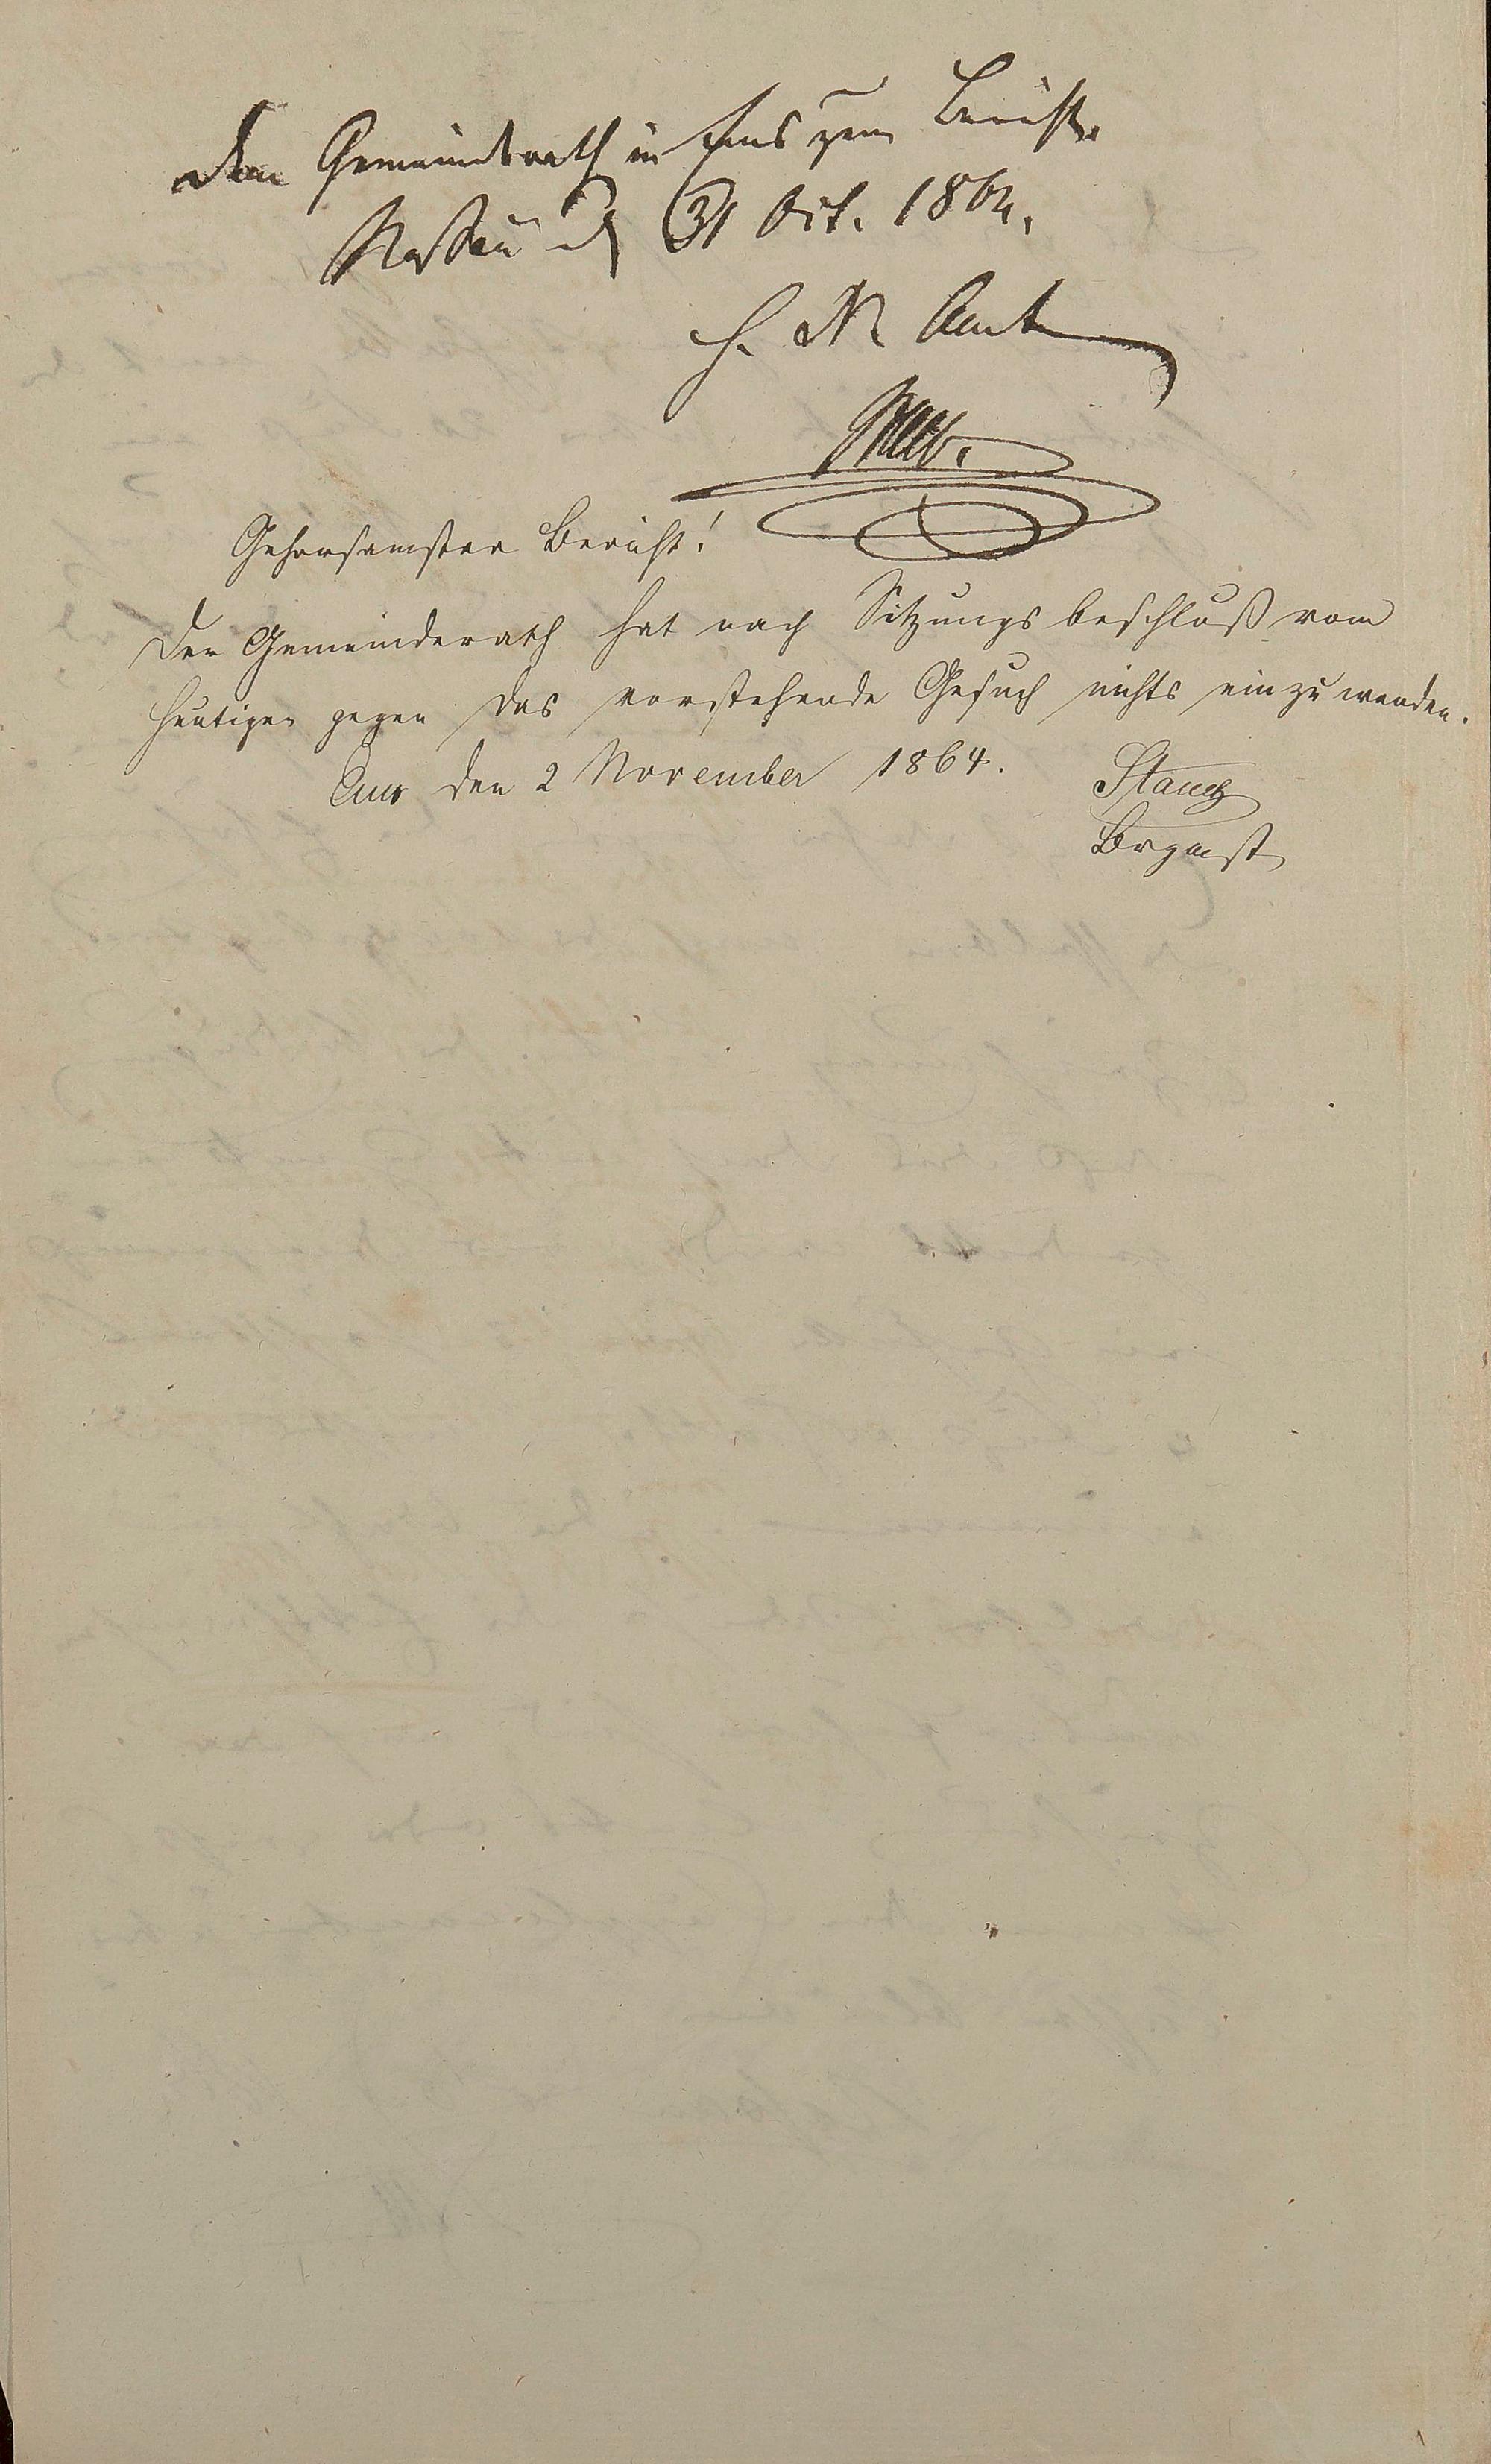 Dem Gemeinderath in Ems zum Bericht.
Nassau d 31 Oct. 1864.
H. N. Amt
Gehorsamster Bericht!
Der Gemeinderath hat nach Sitzungsbeschluß vom
Heutigen gegen das vorstehende Gesuch nichts einzuwenden.
Ems den 2 November 1864.
Stauch
Brgmst